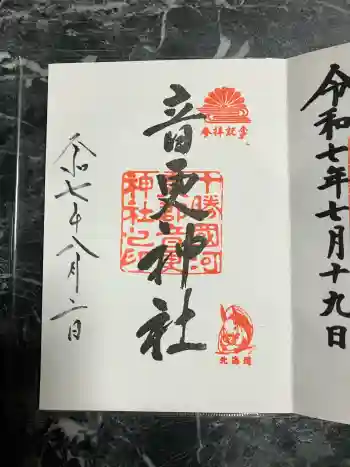 令和七年七月十九日
参拝記章
音更神社
十勝國河
東郡音更
神社之印
北海道
令和七年八月二日